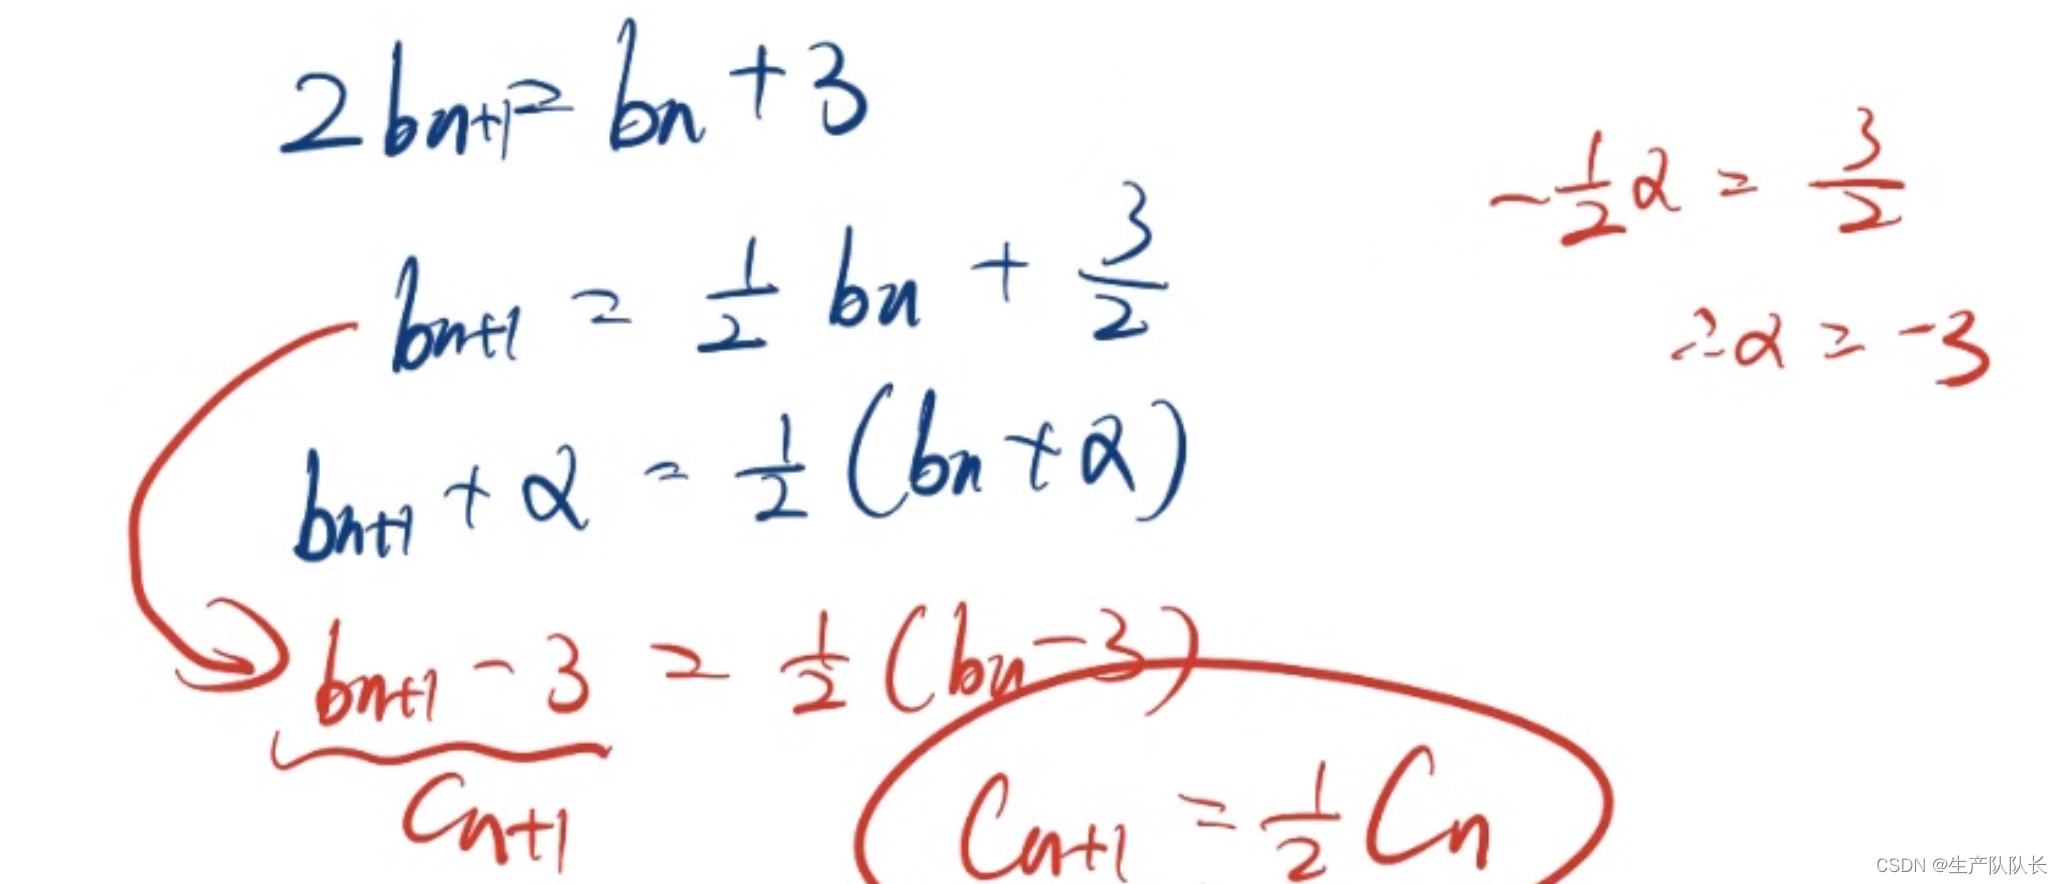 2bn+1 = bn + 3
bn+1 = 1/2 bn + 3/2
bn+1 + α = 1/2 (bn + α)
bn+1 - 3 = 1/2 (bn - 3)
Cn+1
Cn+1 = 1/2 Cn
-1/2 α = 3/2
∴ α = -3
CSDN @生产队队长